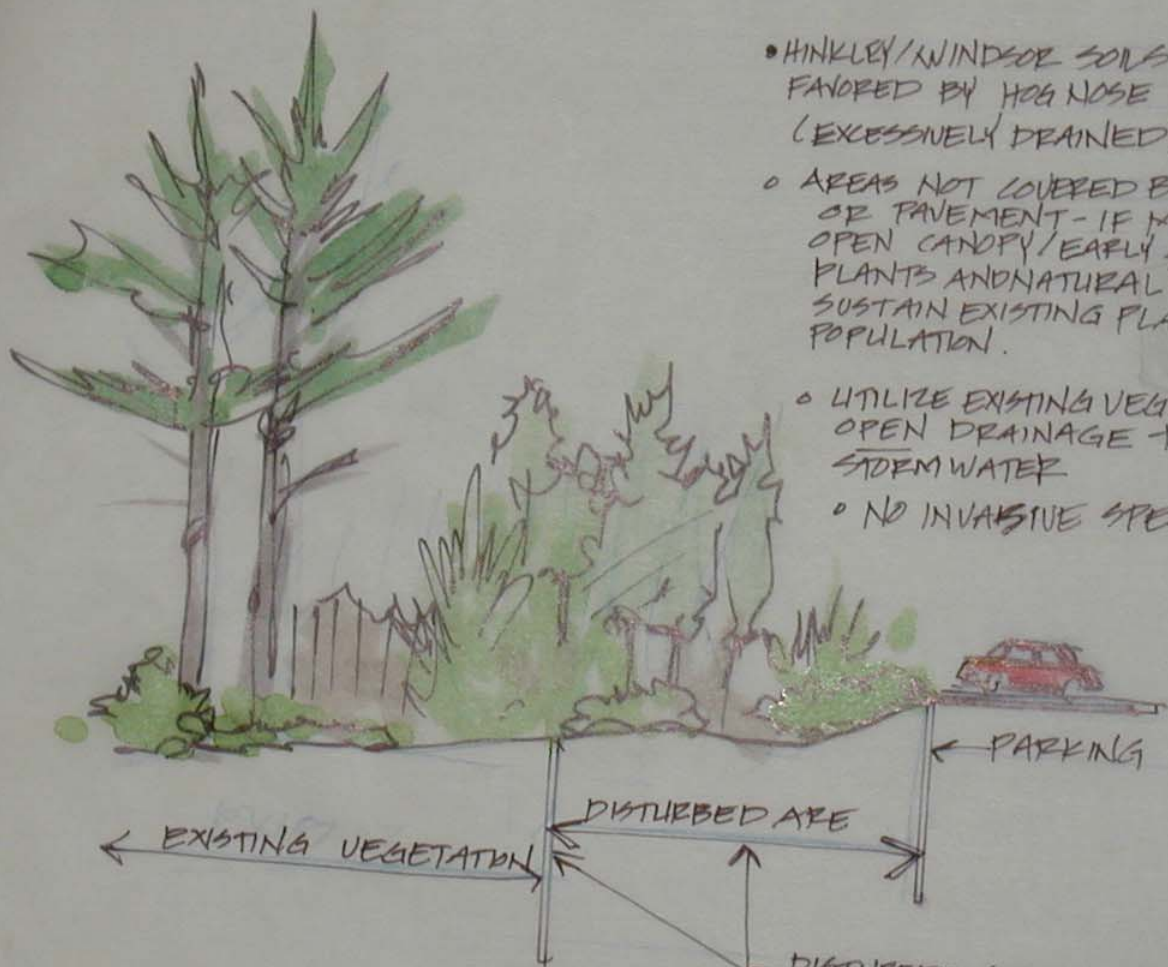 • HINKLEY/WINDSOR SOILS
FAVORED BY HOG NOSE
(EXCESSIVELY DRAINED
• AREAS NOT COVERED B
OR PAVEMENT - IF M
OPEN CANOPY/EARLY
PLANTS AND NATURAL
SUSTAIN EXISTING PLA
POPULATION.
• UTILIZE EXISTING VEG
OPEN DRAINAGE
STORMWATER
• NO INVASIVE SPE
PARKING
DISTURBED ARE
EXISTING VEGETATON